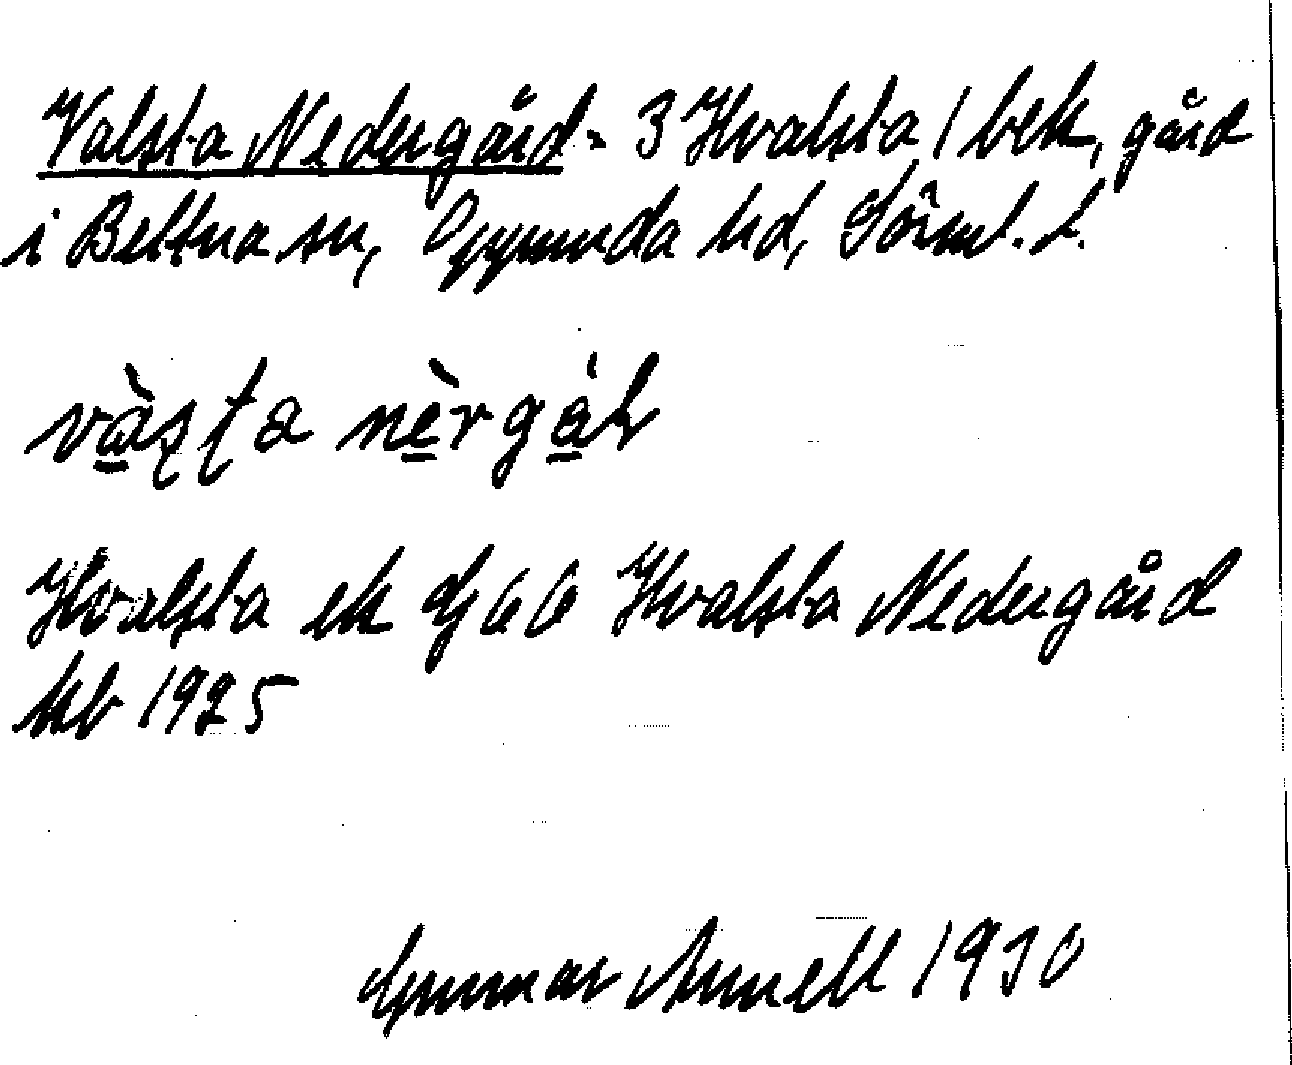 Valsta Nedergård = 3 Hvalsta 1 bek, gård
i Bettna sn, Oppunda hd, Sörml. l.
vàʂʈa nèrgáɽ
Hvalsta ek Gj 66 Hvalsta Nedergård
kb 1925
Gunnar Arnell 1930